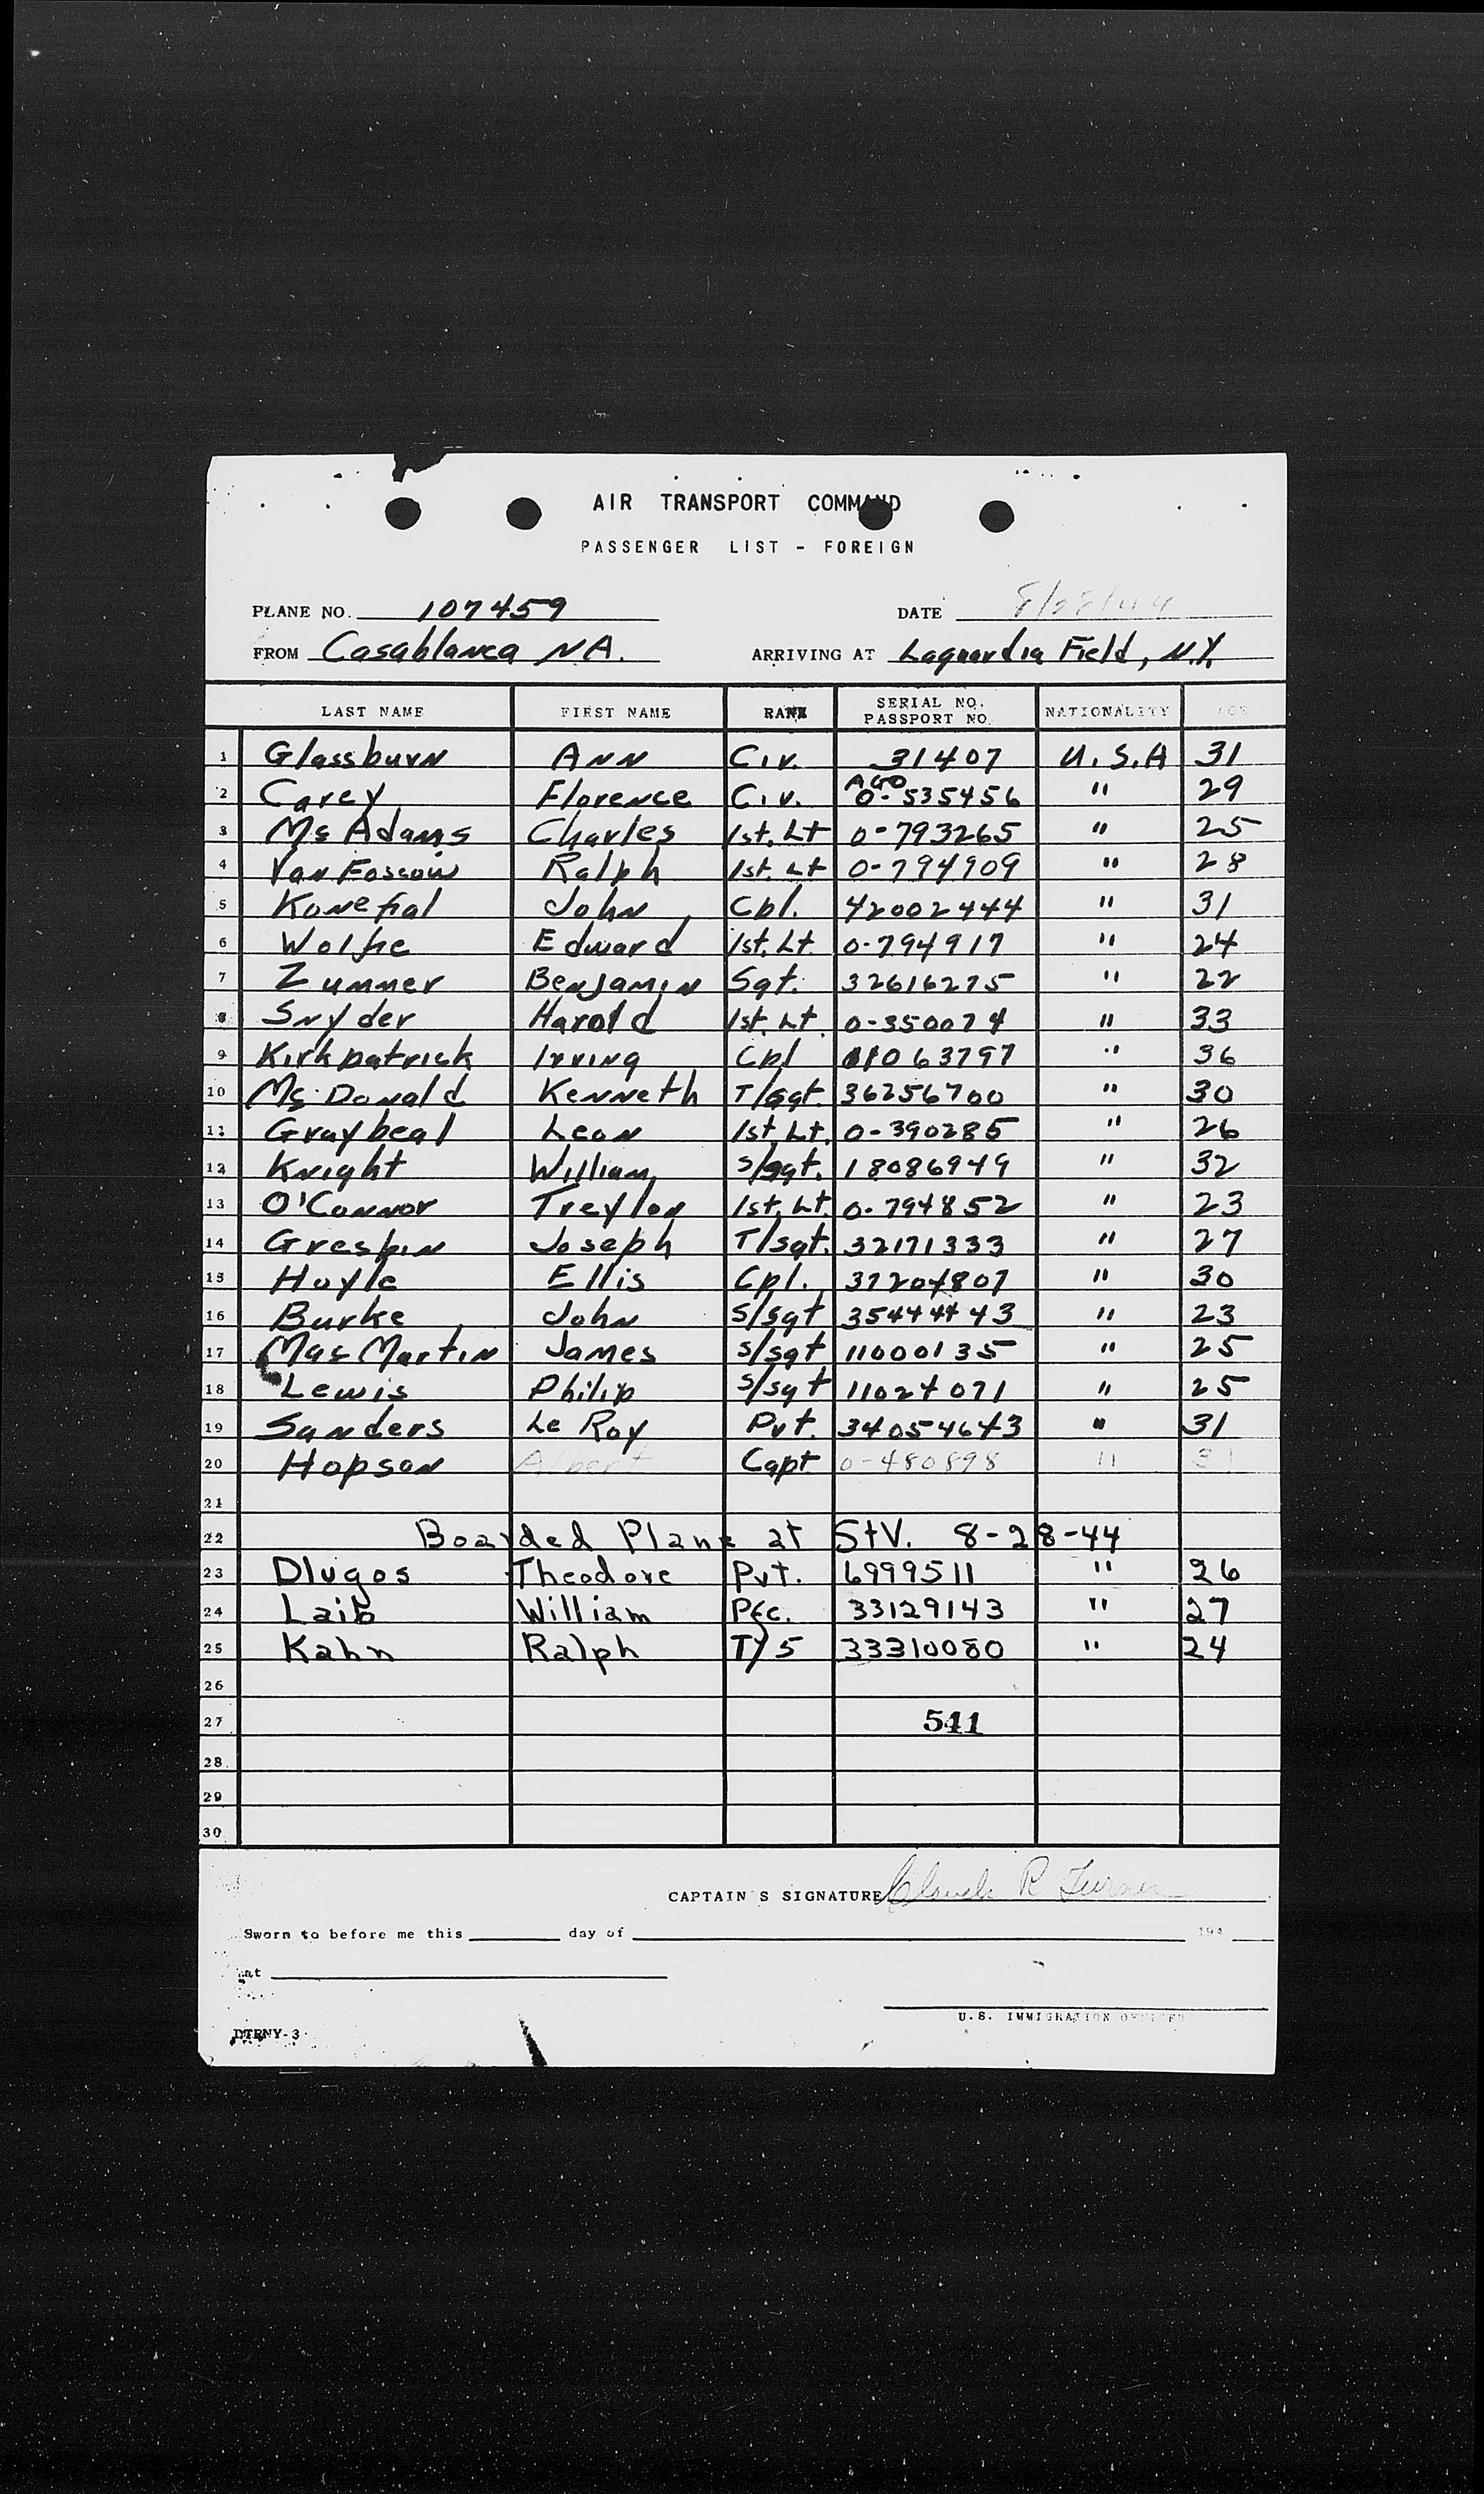 AIR TRANSPORT COMMAND
PASSENGER LIST - FOREIGN
PLANE NO. 107459 DATE 8/28/44
FROM Casablanca NA. ARRIVING AT Laguardia Field, N.Y.
LAST NAME FIRST NAME RANK SERIAL NO. PASSPORT NO. NATIONALITY AGE
1 Glassburn Ann Civ. 31407 U.S.A 31
2 Carey Florence Civ. AGO 0-535456 " 29
3 McAdams Charles 1st. Lt 0-793265 " 25
4 Ralph 1st. Lt 0-794909 " 28
5 Konefal John Cpl. 42002444 " 31
6 Wolfe Edward 1st. Lt. 0-794917 " 24
7 Zummer Benjamin Sgt. 32616275 " 22
8 Snyder Harold 1st. Lt. 0-350074 " 33
9 Kirkpatrick Irving Cpl 11063797 " 36
10 McDonald Kenneth T/Sgt. 36256700 " 30
11 Graybeal Leon 1st. Lt. 0-390285 " 26
12 Knight William S/Sgt. 18086949 " 32
13 O'Connor Treylon 1st. Lt. 0-794852 " 23
14 Greshin Joseph T/Sgt. 32171333 " 27
15 Hoyle Ellis Cpl. 37204807 " 30
16 Burke John S/Sgt 35444443 " 23
17 MacMartin James S/Sgt 11000135 " 25
18 Lewis Philip S/Sgt 11024071 " 25
19 Sanders Le Roy Pvt. 34054643 " 31
20 Hopson Albert Capt 0-480898 " 31
21
22 Boarded Plane at StV. 8-28-44
23 Dlugos Theodore Pvt. 6999511 " 26
24 Laib William Pfc. 33129143 " 27
25 Kahn Ralph T/5 33310080 " 24
26
27 541
28
29
30
CAPTAIN'S SIGNATURE Claude R Turner
Sworn to before me this day of 194
at
U.S. IMMIGRATION OFFICER
DTRNY-3